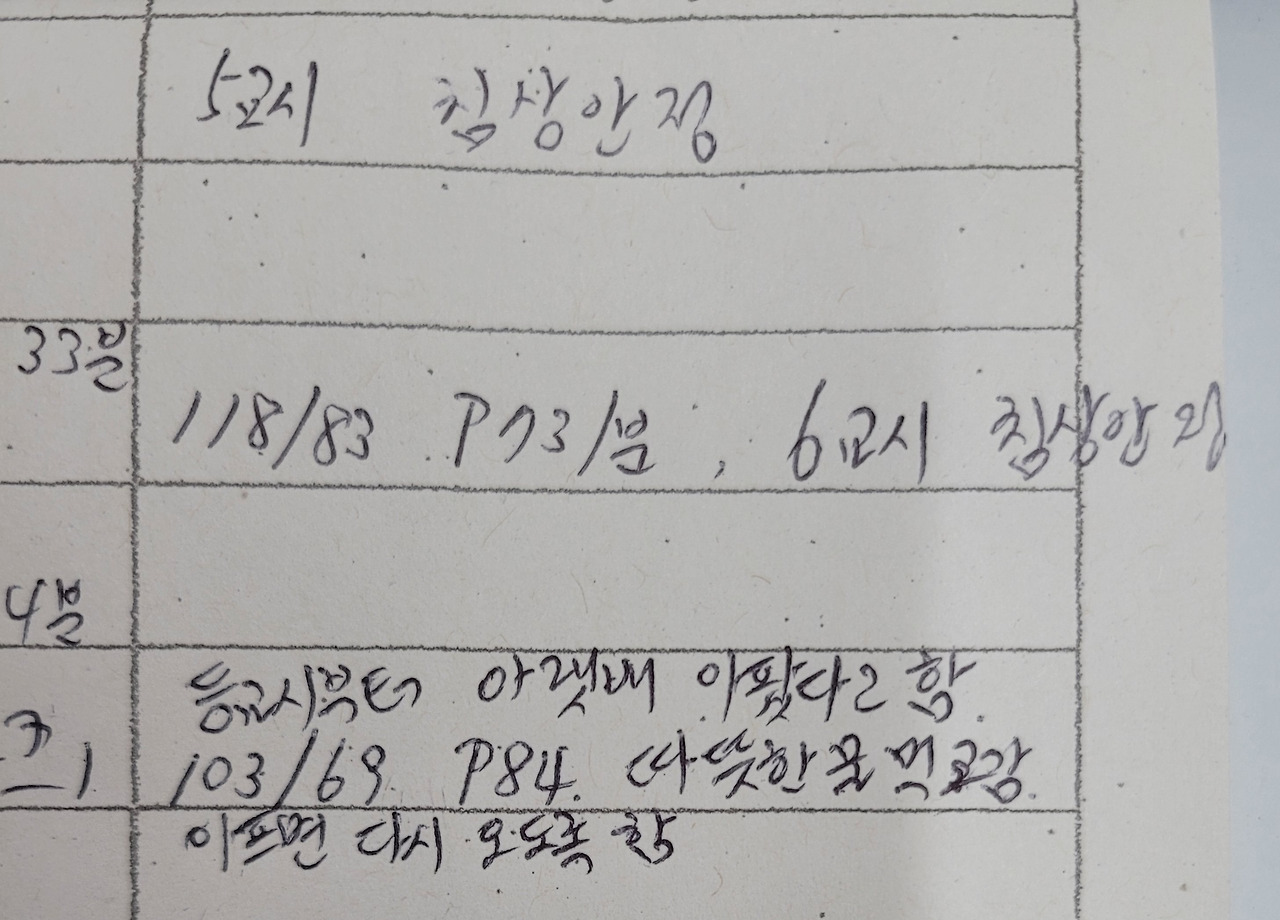 5교시 침상안정
33분
118/83 P73/분, 6교시 침상안정
4분
등교시부터 아랫배 아팠다고 함.
1 103/69 P84. 따뜻한 물 먹고감.
아프면 다시 오도록 함